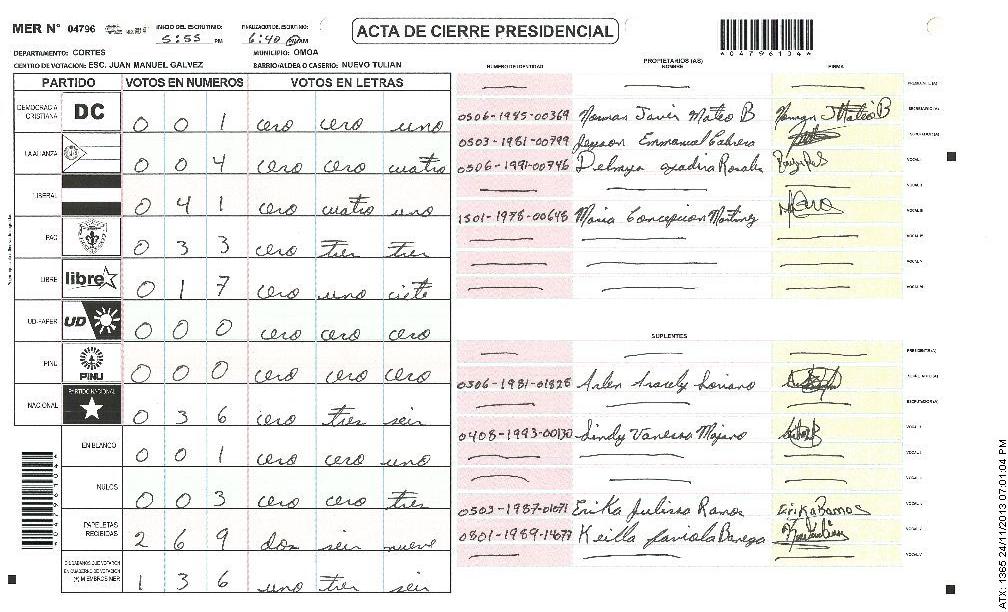 MER N° 04796
INICIO DEL ESCRUTINIO:
5:55 PM
FINALIZACION DEL ESCRUTINIO:
6:40 AM
ACTA DE CIERRE PRESIDENCIAL
*04796134*
DEPARTAMENTO: CORTES
MUNICIPIO: OMOA
CENTRO DE VOTACION: ESC. JUAN MANUEL GALVEZ
BARRIO/ALDEA O CASERIO: NUEVO TULIAN
PARTIDO VOTOS EN NUMEROS VOTOS EN LETRAS
DEMOCRACIA CRISTIANA DC 0 0 1 cero cero uno
LA ALIANZA 0 0 4 cero cero cuatro
LIBERAL 0 4 1 cero cuatro uno
PAC 0 3 3 cero tres tres
LIBRE libre 0 1 7 cero uno ciete
UD-FAPER UD 0 0 0 cero cero cero
PINU PINU 0 0 0 cero cero cero
NACIONAL PARTIDO NACIONAL 0 3 6 cero tres seis
EN BLANCO 0 0 1 cero cero uno
NULOS 0 0 3 cero cero tres
PAPELETAS RECIBIDAS 2 6 9 dos seis nueve
CIUDADANOS QUE VOTARON
EN CUADERNO DE VOTACION
(+) MIEMBROS MER 1 3 6 uno tres seis
PROPIETARIOS (AS)
NUMERO DE IDENTIDAD NOMBRE FIRMA
PRESIDENTE (A)
0506-1985-00369 Norman Javier Mateo B Norman J Mateo B SECRETARIO (A)
0503-1981-00799 Jeyson Emmanuel Cabrera ESCRUTADOR (A)
0506-1991-00746 Rosales VOCAL I
VOCAL II
1501-1978-00648 Maria Concepcion Martinez VOCAL III
VOCAL IV
VOCAL V
VOCAL VI
SUPLENTES
PRESIDENTE (A)
0506-1981-01828 Arlen Aracely Soriano SECRETARIO (A)
ESCRUTADOR (A)
0408-1993-00130 Sindy Vanessa Majano VOCAL I
0503-1987-01071 Erika Julissa Ramos Erika Ramos
0801-1989-14677 Keilla Faviola Banega
VOCAL V
ATX: 1365 24/11/2013 07:01:04 PM